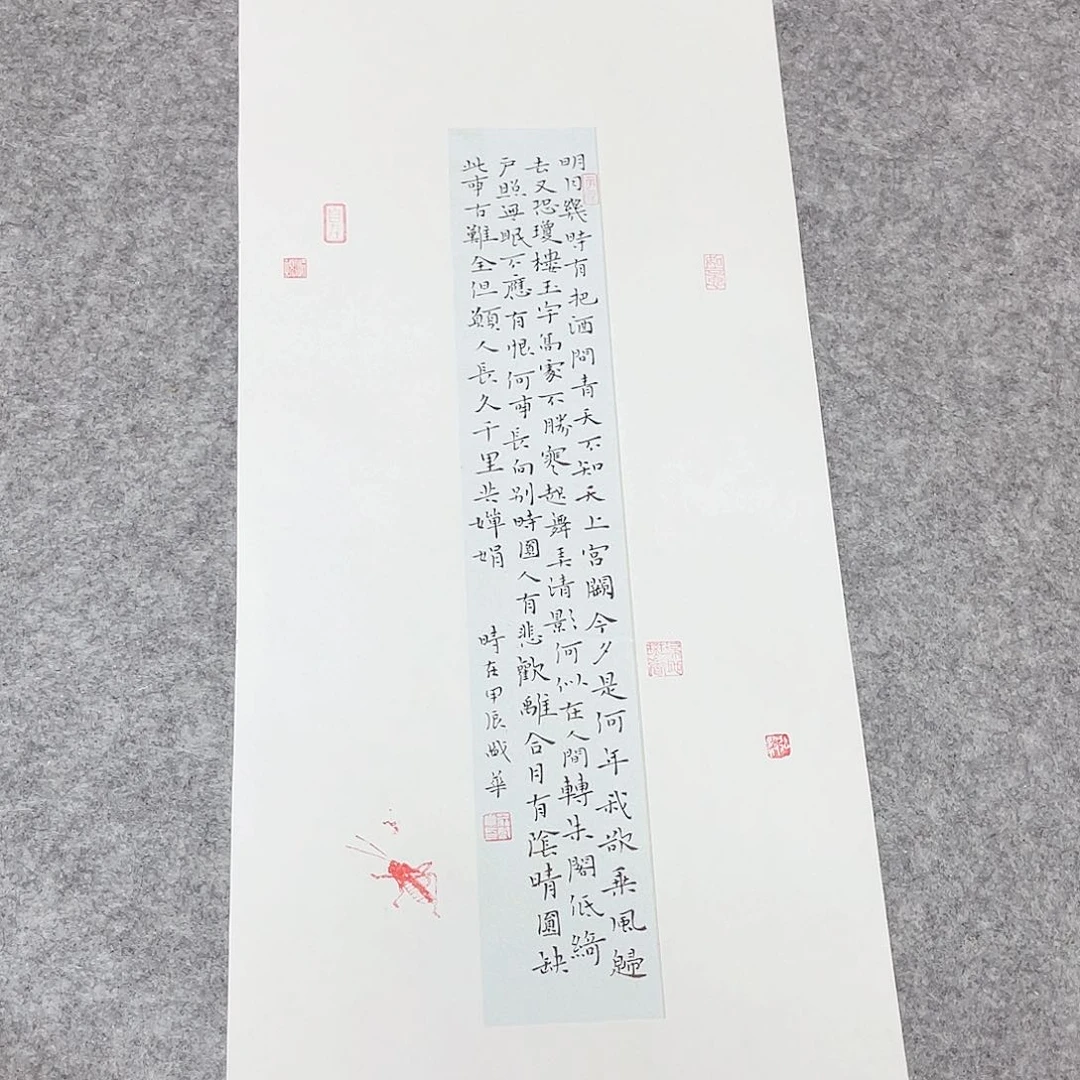 明月幾時有把酒問青天不知天上宮闕今夕是何年我欲乘風歸
去又恐瓊樓玉宇高處不勝寒起舞弄清影何似在人間轉朱閣低綺
戶照無眠不應有恨何事長向別時圓人有悲歡離合月有陰晴圓缺
此事古難全但願人長久千里共嬋娟
時在甲辰華